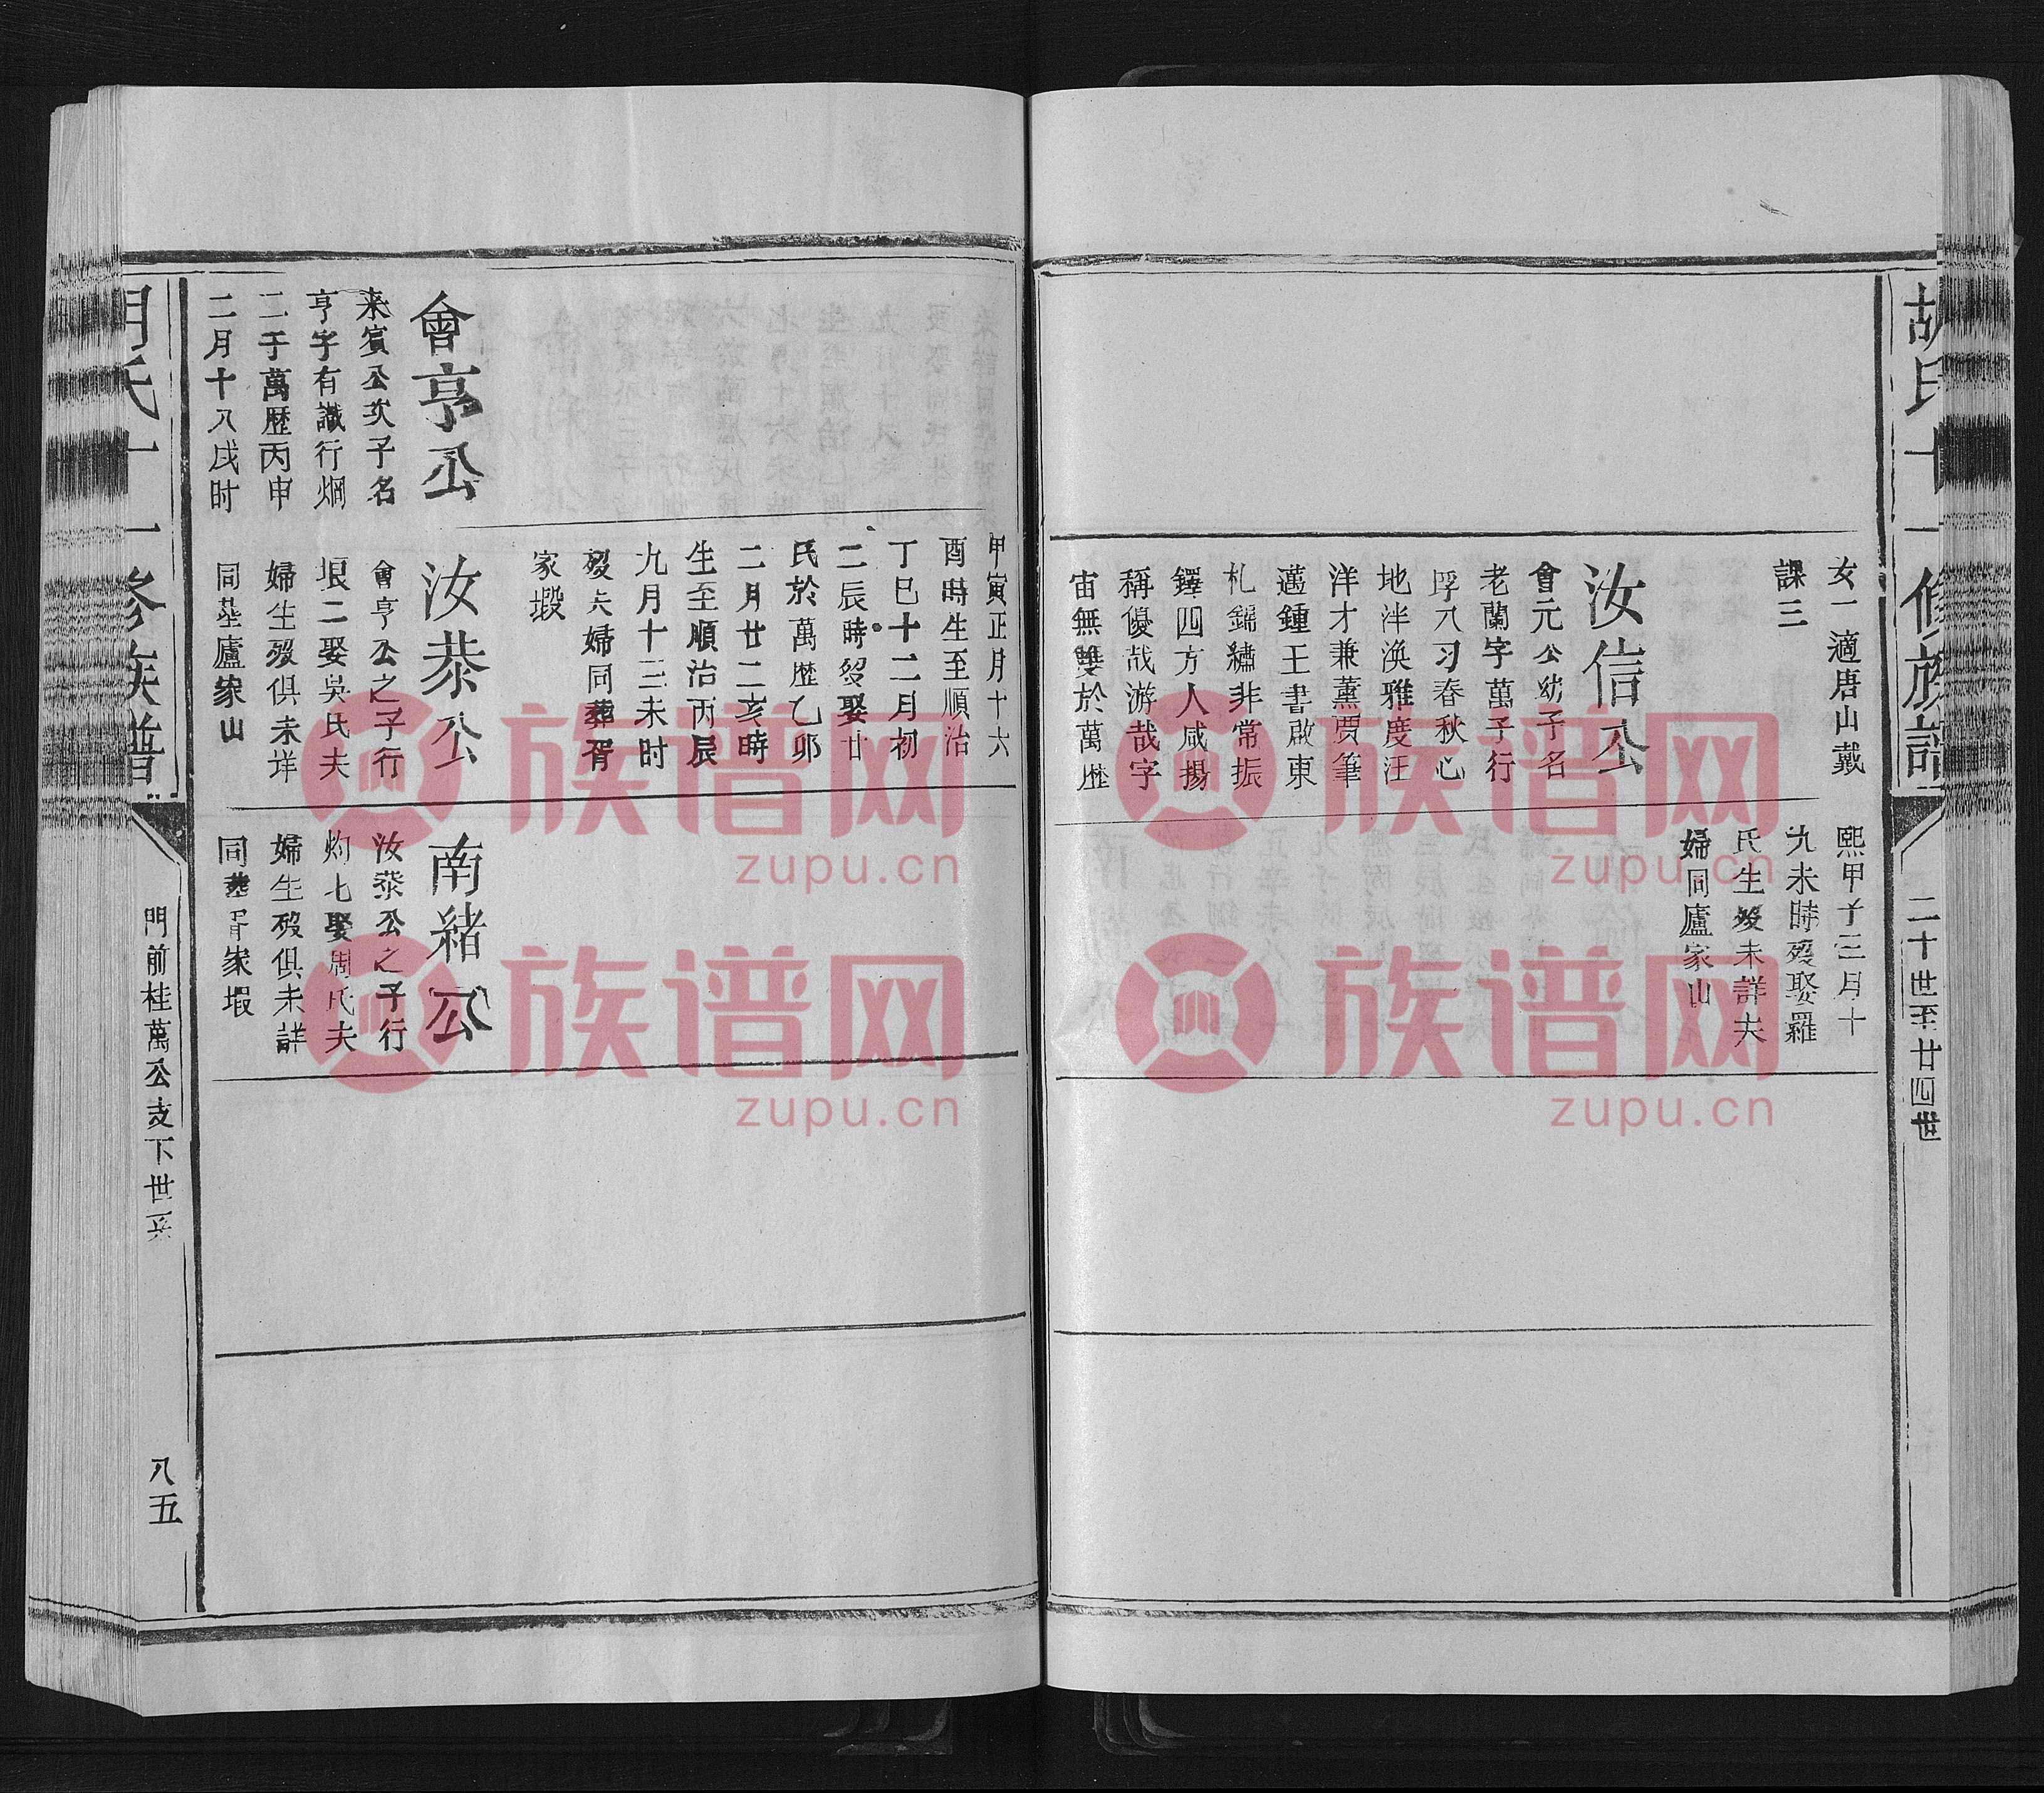 胡氏十一修族譜
二十世至廿四世
女一適唐山戴
課三
汝信公
會元公幼子名
老蘭字萬子行
垺八习春秋心
地泮渙雅度汪
洋才兼薰賈筆
邁鍾王書啟東
札錦繡非常振
鐸四方人咸揚
稱優哉游哉字
宙無雙於萬歷
熙甲子三月十
九未時殁娶羅
氏生殁未詳夫
婦同廬家山
甲寅正月十六
酉時生至順治
丁巳十二月初
二辰時殁娶廿
氏於萬歷乙卯
二月廿二亥時
生至順治丙辰
九月十三未时
殁夫婦同葬胥
家塅
會亨公
来賓公次子名
亨字有讖行烱
二于萬歷丙申
二月十八戌时
汝恭公
會亨公之子行
垠二娶吳氏夫
婦生殁俱未详
同墓廬家山
南緒公
汝恭公之子行
灼七娶周氏夫
婦生殁俱未詳
同墓胥家塅
氏十一修族譜
門前桂萬公支下世系
八五
族谱网
zupu.cn
族谱网
zupu.cn
族谱网
zupu.cn
族谱网
zupu.cn